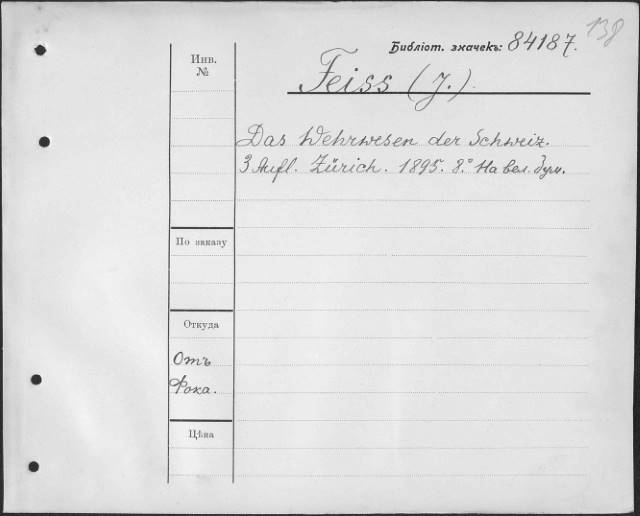 138
Библіот. значекъ: 84187.
Инв.
№
Feiss (J.).
Das Wehrwesen der Schweiz.
3 Aufl. Zürich. 1895. 8.° На вел. бум.
По заказу
Откуда
Отъ
Фока.
Цѣна